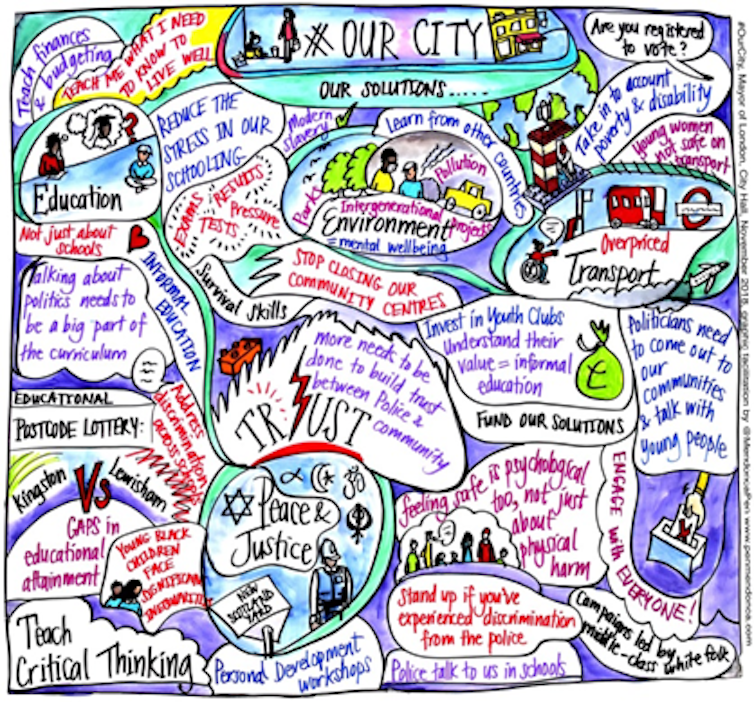 OUR CITY
OUR SOLUTIONS.....
Teach finances
& budgeting
TEACH ME WHAT I NEED
TO KNOW TO
LIVE WELL
?
Education
REDUCE THE
STRESS IN OUR
SCHOOLING
EXAMS
RESULTS
Pressure
TESTS
Not just about
schools
INFORMAL
EDUCATION
Talking about
politics needs to
be a big part of
the curriculum
Survival Skills
Modern
slavery
Learn from other countries
Pollution
Parks
Intergenerational
Projects
Environment
= mental wellbeing
STOP CLOSING OUR
COMMUNITY CENTRES
Are you registered
to vote?
Take in to account
poverty & disability
Young women
not safe on
transport
Overpriced
Transport
more needs to be
done to build trust
between Police &
community
TRUST
Invest in Youth Clubs
understand their
value = informal
education
£
FUND OUR SOLUTIONS
Politicians need
to come out to
our
communities
& talk with
young people
ENGAGE with EVERYONE!
EDUCATIONAL
POSTCODE LOTTERY:
Kingston
Vs
Lewisham
Address
discrimination
across
GAPS in
educational
attainment
YOUNG BLACK
CHILDREN
FACE
SIGNIFICANT
Teach
Critical Thinking
Peace &
Justice
NEW
SCOTLAND
YARD
Personal Development
workshops
feeling safe is psychological
too, not just
about
physical
harm
Stand up if you've
experienced discrimination
from the police
Police talk to us in schools
Campaigns led by
middle-class white folk
#OurCity, Mayor of London, City Hall, November 2018.